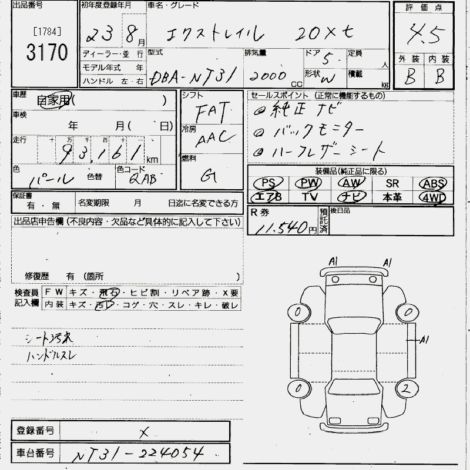 出品番号
[1784]
3170
初年度登録年月
23 8月
ディーラー・並行
モデル年式 年
ハンドル 左・右
車名・グレード
エクストレイル 20xt
型式
DBA-NT31
排気量
2000 CC
ドア 5
形状 W
積載 kg
評価点
4.5
外装 内装
B B
車歴
自家用
車検
年 月( 月)
走行
十万 万 千 百 十
93,161 km
色 色替 色コード
パール QAB
シフト
FAT
冷房
AAC
燃料
G
セールスポイント(正常に機能するもの)
純正ナビ
バックモニター
ハーフレザーシート
装備品(純正品に限る)
PS PW AW SR ABS
エアB TV ナビ 本革 4WD
保証書
有・無 名変期限 月 日迄に名変できる方
R券
11,540円
預託済
後日品
出品店申告欄(不良内容・欠品など具体的に記入して下さい)
修復歴 有 (箇所 )
検査員記入欄
FW キズ・飛石・ヒビ割・リペア跡・X要
内装 キズ・汚レ・コゲ・穴・スレ・キレ・破レ
シート汚れ
ハンドルスレ
A1 A1
0 0
A1
0 2
登録番号 X
車台番号 NT31-224054